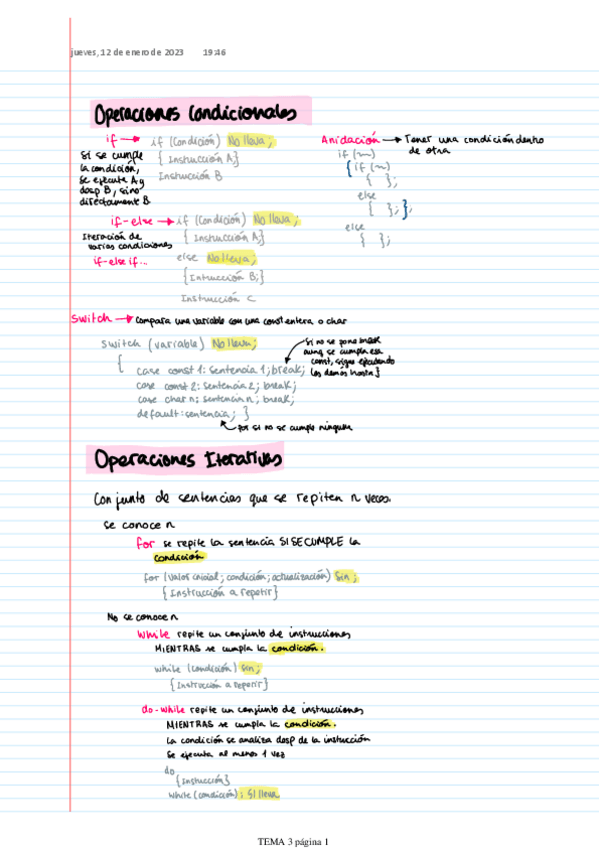 jueves, 12 de enero de 2023 19:46
Operaciones Condicionales
if → if (Condición) No lleva ;
{ Instrucción A }
Instrucción B
Si se cumple
la condición,
se ejecuta A y
desp B, sino
directamente B
Anidación → Tener una condición dentro
de otra
if (~)
{ if (~)
{ };
else
{ }; };
else
{ };
if-else → if (Condición) No lleva ;
{ Instrucción A }
else No lleva ;
{ Intrucción B; }
Instrucción C
Iteración de
varias condiciones
if-else if...
Switch → Compara una variable con una const entera o char
switch (variable) No lleva ;
{ case const 1: Sentencia 1; break;
case const 2: Sentencia 2; break;
case char n: Sentencia n; break;
default: sentencia; }
Si no se pone break
aunq se cumpla esa
const, sigue ejecutando
los demás hasta }
por si no se cumple ninguna
Operaciones Iterativas
Conjunto de sentencias que se repiten n veces.
Se conoce n
for se repite la sentencia SI SE CUMPLE la
condición
for (valor inicial; condición; actualización) Sin ;
{ Instrucción a repetir }
No se conoce n
While repite un conjunto de instrucciones
MIENTRAS se cumpla la condición.
while (condición) sin ;
{ Instrucción a repetir }
do-while repite un conjunto de instrucciones
MIENTRAS se cumpla la condición.
La condición se analiza desp de la instucción
Se ejecuta al menos 1 vez
do
{ Instrucción }
while (condición) ; SI lleva
TEMA 3 página 1